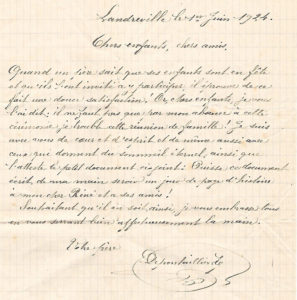 Landreville le 1er Juin 1924.
Chers enfants, chers amis.
Quand un père sait que ses enfants sont en fête
et qu'ils l'ont invité à y participer, il éprouve de ce
fait une douce satisfaction. Or, chers enfants, je vous
l'ai dit: il ne faut pas que par mon absence à cette
cérémonie je trouble cette réunion de famille. Je suis
avec vous de cœur et d'esprit et de même aussi avec
ceux qui dorment du sommeil éternel, ainsi que
l'atteste le petit document ci-joint. Puisse ce document
écrit de ma main servir un jour de page d'histoire
à mon cher René et à ses amis!
Souhaitant qu'il en soit ainsi, je vous embrasse tous
en vous serrant bien affectueusement la main.
Votre père